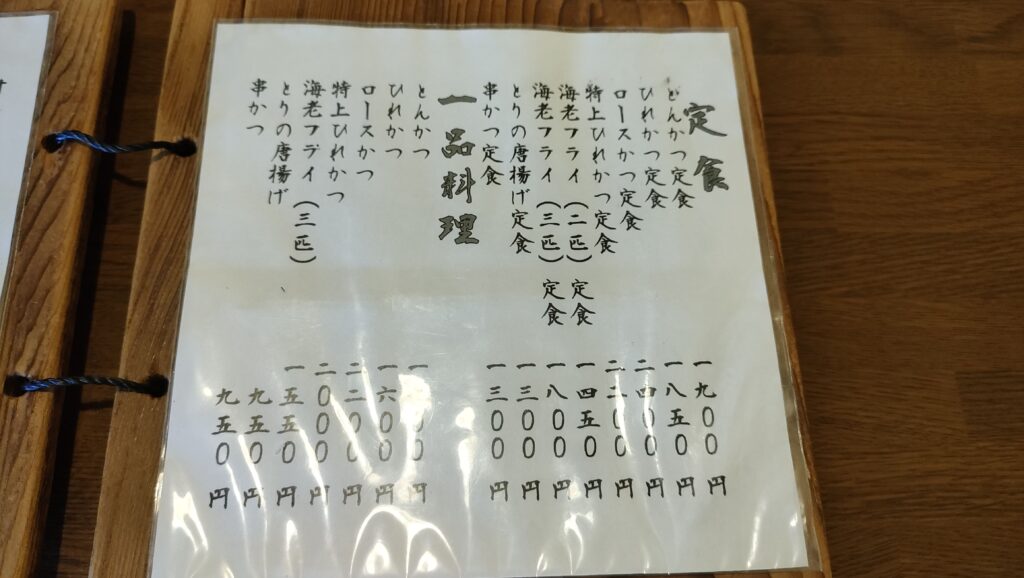 定食
とんかつ定食 一九〇〇円
ひれかつ定食 一八五〇円
ロースかつ定食 二四〇〇円
特上ひれかつ定食 二二〇〇円
海老フライ(二匹)定食 一四五〇円
海老フライ(三匹)定食 一八〇〇円
とりの唐揚げ定食 一三〇〇円
串かつ定食 一三〇〇円
一品料理
とんかつ 円
ひれかつ 一六〇〇円
ロースかつ 二二〇〇円
特上ひれかつ 二〇〇〇円
海老フライ(三匹) 一五五〇円
とりの唐揚げ 九五〇円
串かつ 九五〇円